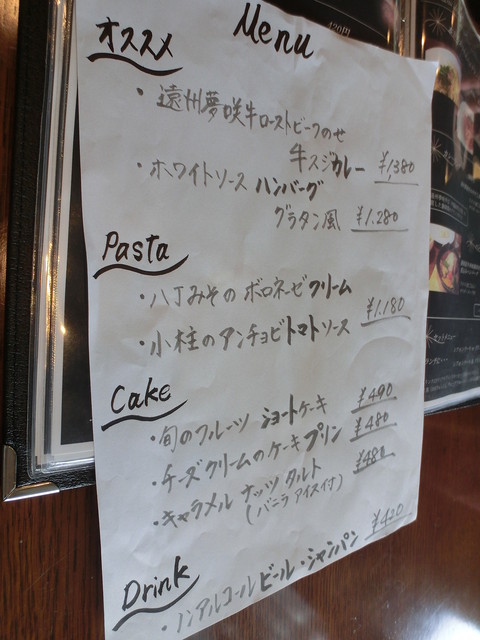 Menu
オススメ
・遠州夢咲牛ローストビーフのせ
牛スジカレー ¥1,380
・ホワイトソース ハンバーグ
グラタン風 ¥1.280
Pasta
・八丁みその ボロネーゼクリーム
¥1.180
・小柱のアンチョビトマトソース
Cake
・旬のフルーツ ショートケーキ ¥490
・チーズクリームのケーキプリン ¥480
・キャラメル ナッツ タルト ¥480
(バニラ アイス付)
Drink
・ノンアルコールビール・シャンパン ¥420
420円